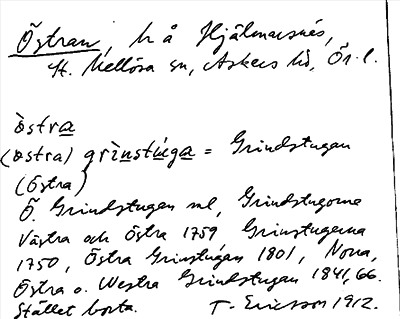 Östran, h å Hjälmarsnäs,
St. Mellösa sn, Askers hd, Ör. l.
òstra
(østra) grìnstúga = Grindstugan
(Östra)
Ö. Grindstugan ml, Grindstugorna
Västra och Östra 1759 Grinstugerna
1750, Östra Grinstugan 1801, Norra,
Östra o. Westra Grindstugan 1841,66.
Stället borta. T. Ericsson 1912.